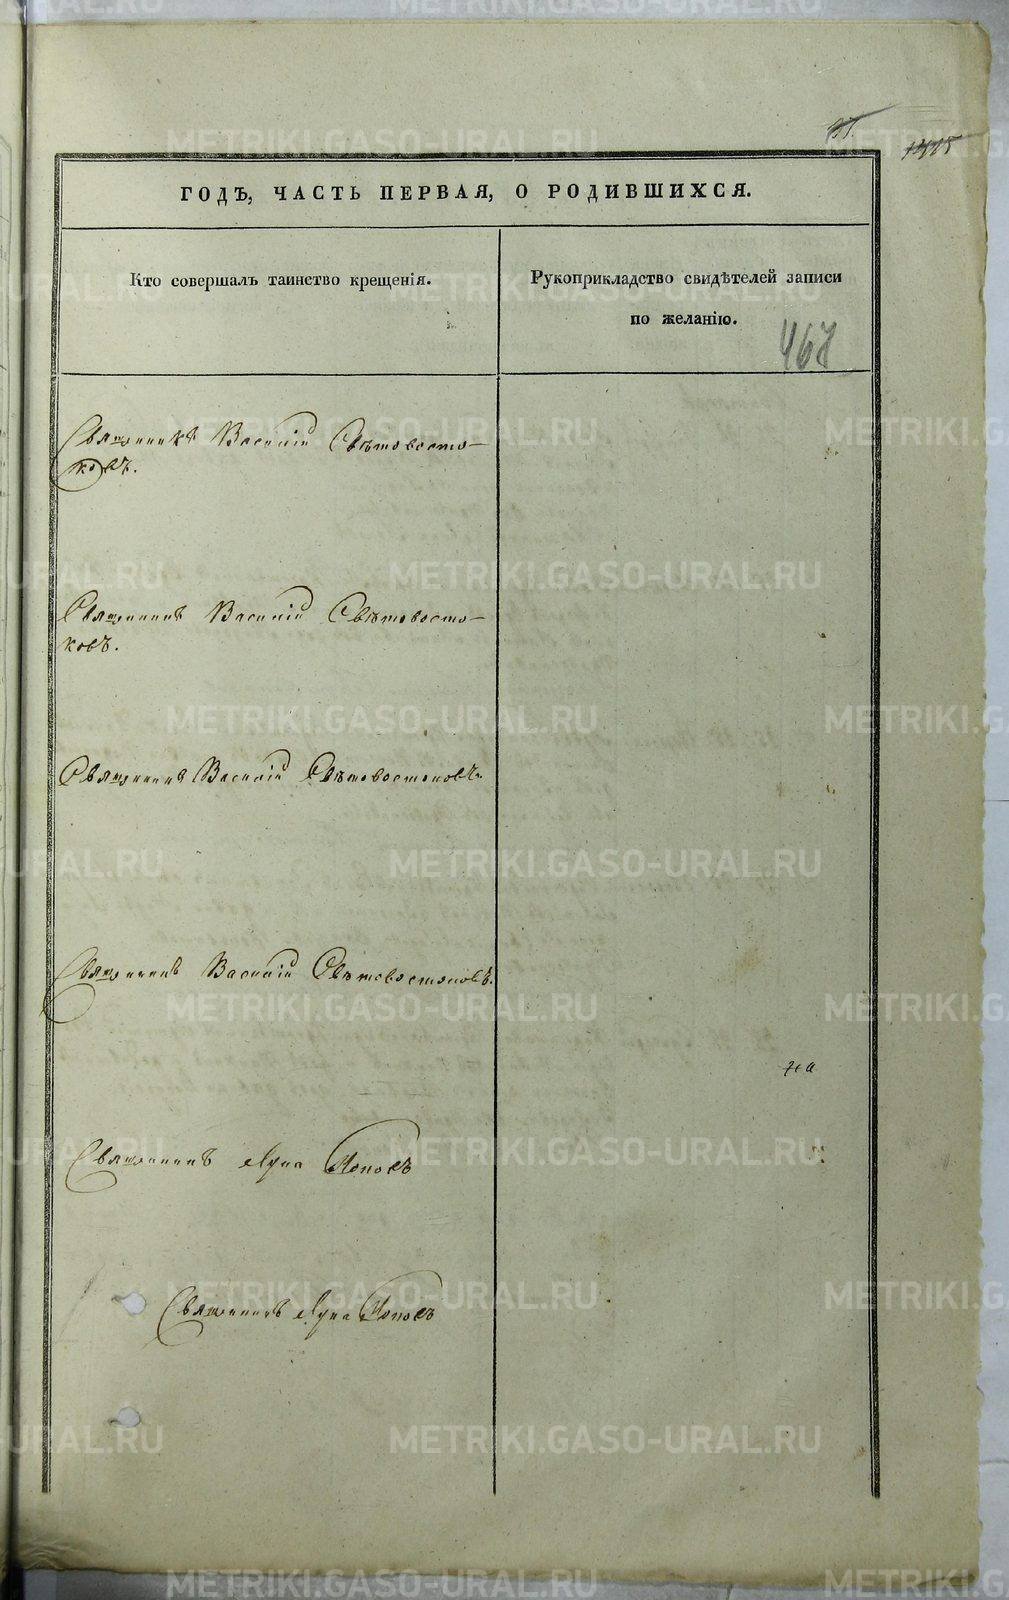 ГОДЪ, ЧАСТЬ ПЕРВАЯ, О РОДИВШИХСЯ.
Кто совершалъ таинство крещенія.
Рукоприкладство свидѣтелей записи
по желанію.
467
Священникъ Василій Свѣтовосто-
ковъ.
Священникъ Василій Свѣтовосто-
ковъ.
Священникъ Василій Свѣтовостоковъ
Священникъ Василій Свѣтовостоковъ.
Священникъ Лука Поповъ
Священникъ Лука Поповъ
METRIKI.GASO-URAL.RU